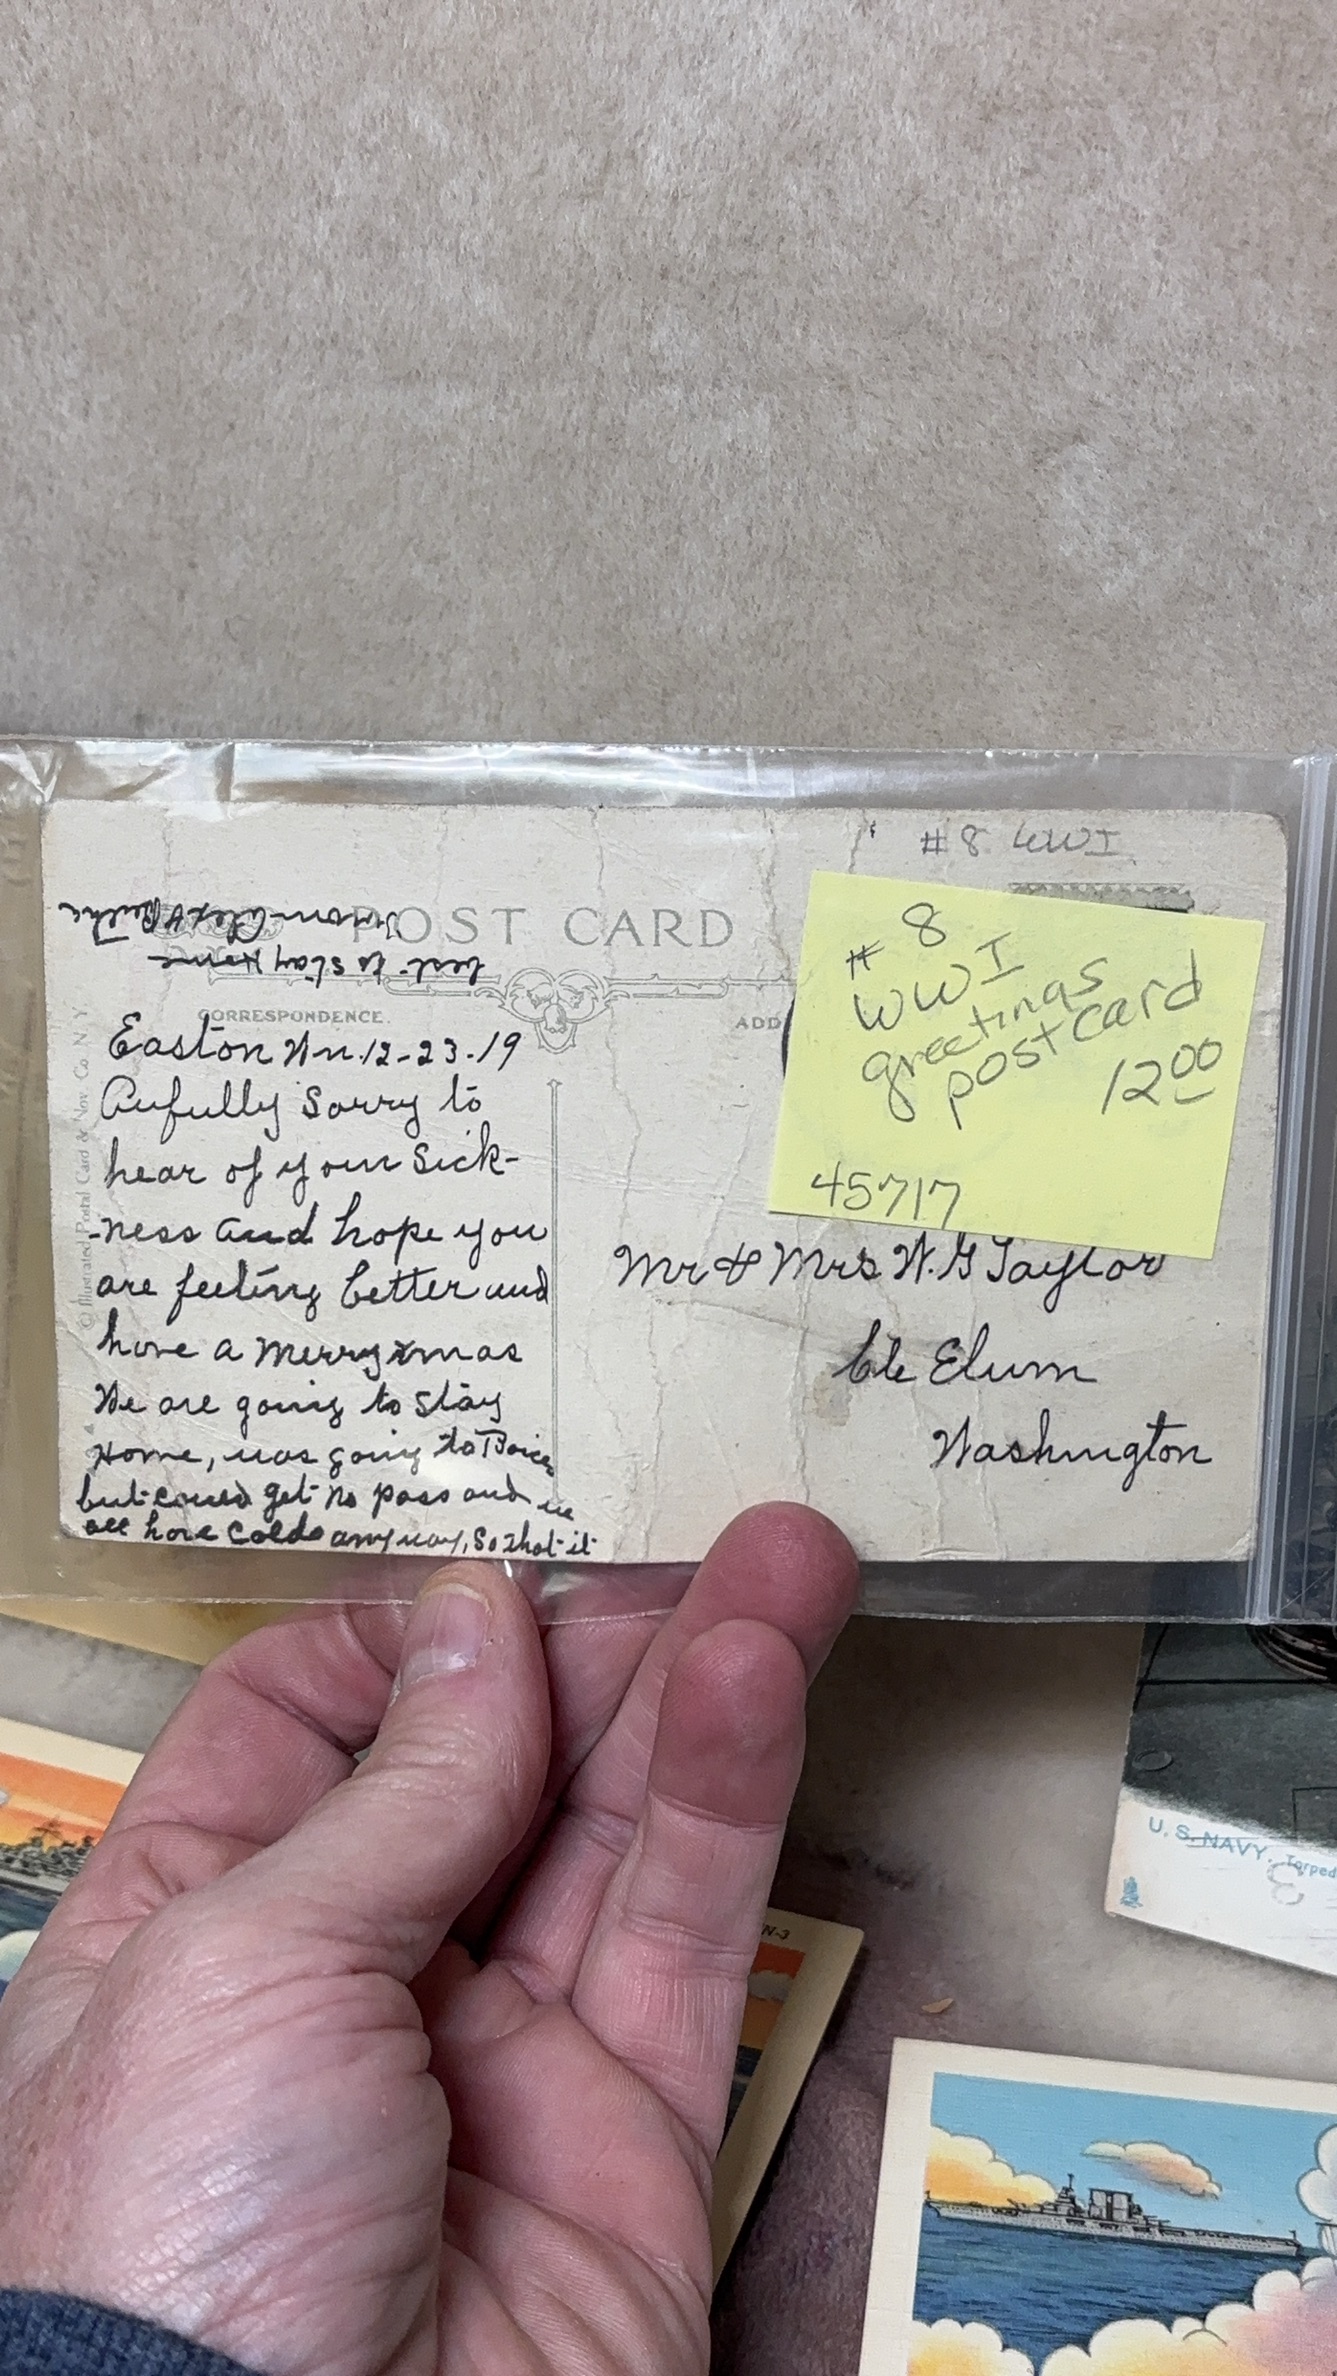 #8 WWI
POST CARD
CORRESPONDENCE.
ADD
# 8
WWI
greetings
postcard
12 00
45717
© Illustrated Postal Card & Nov. Co. N. Y.
Easton Wn. 12-23-19
Awfully Sorry to
hear of your Sick-
-ness and hope you
are feeling better and
have a Merry xmas
We are going to stay
Home, was going to
but could get no pass and we
all have Colds anyway, So that it
best to stay Home
From Alex &
Mr & Mrs W. G Taylor
Cle Elum
Washington
U. S. NAVY. Torped
3
N-3